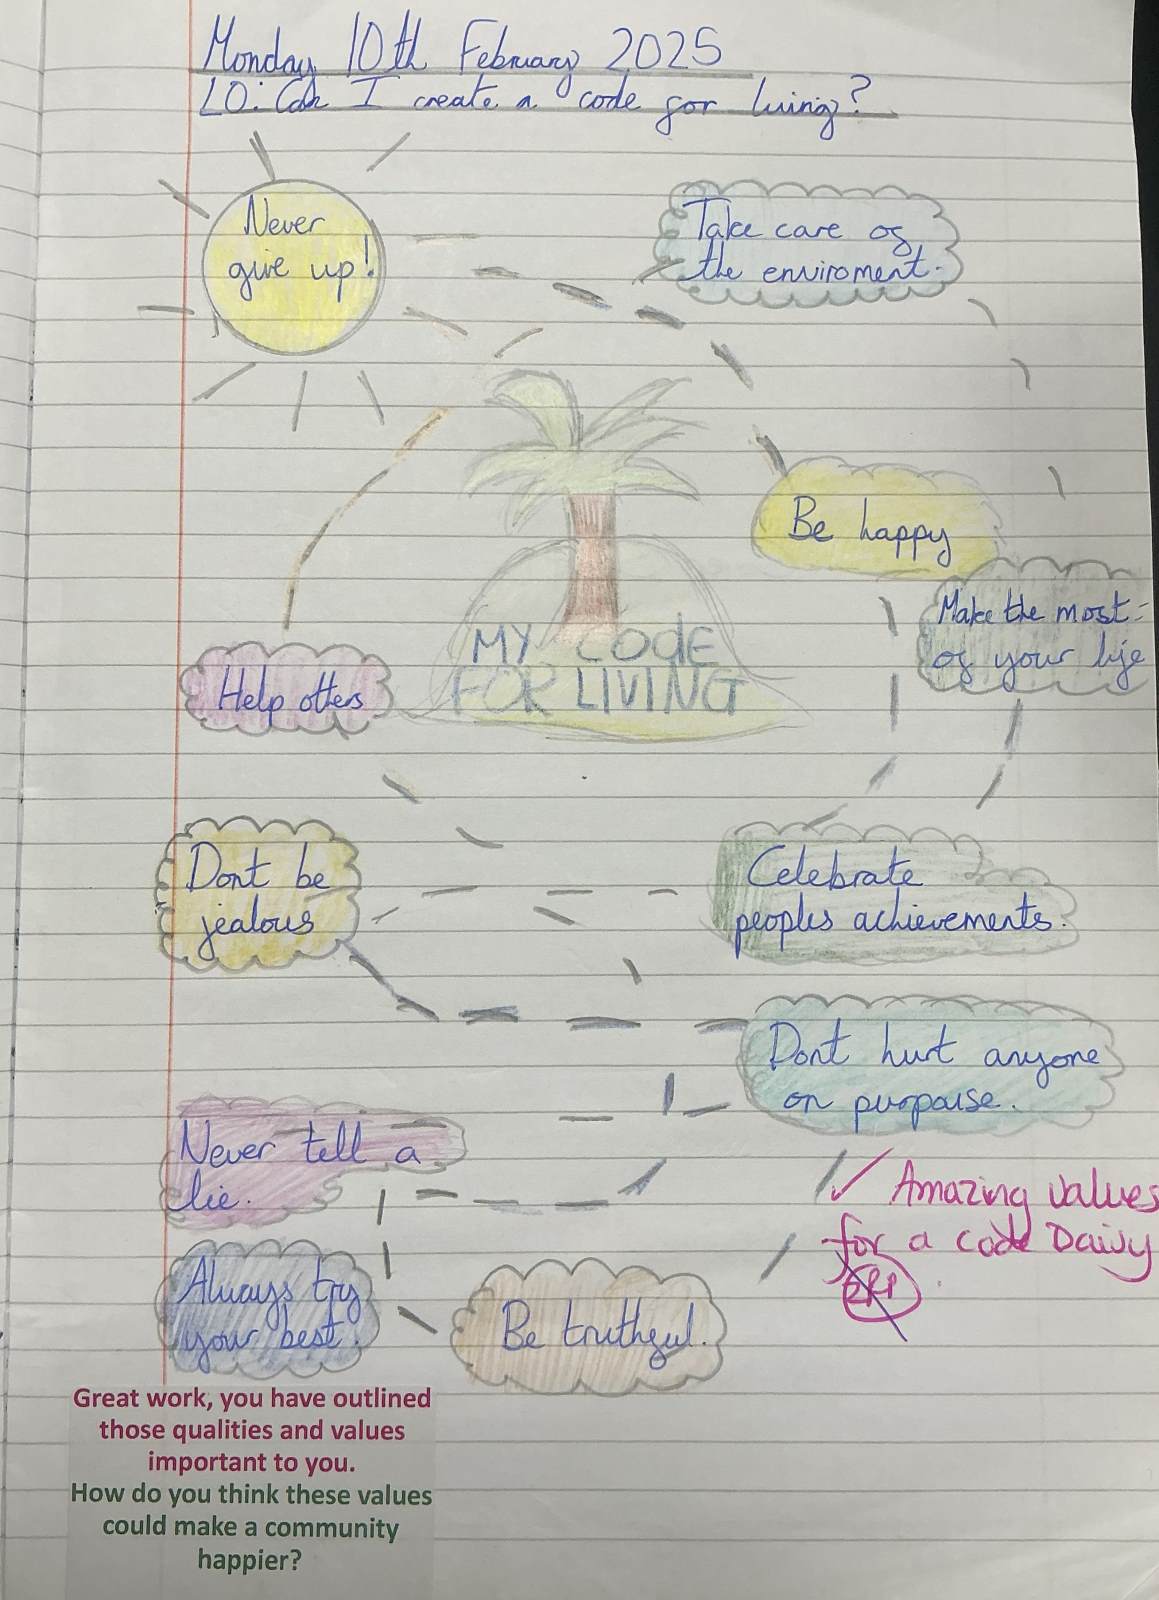 Monday 10th February 2025
LO: Can I create a code for living?
Never
give up!
Take care of
the enviroment.
Be happy
Make the most
of your life
MY CODE
FOR LIVING
Help others
Dont be
jealous
Celebrate
peoples achievements.
Dont hurt anyone
on purpouse.
Never tell a
lie.
✓ Amazing values
for a code Daivy
Always try
your best.
Be truthful.
Great work, you have outlined
those qualities and values
important to you.
How do you think these values
could make a community
happier?